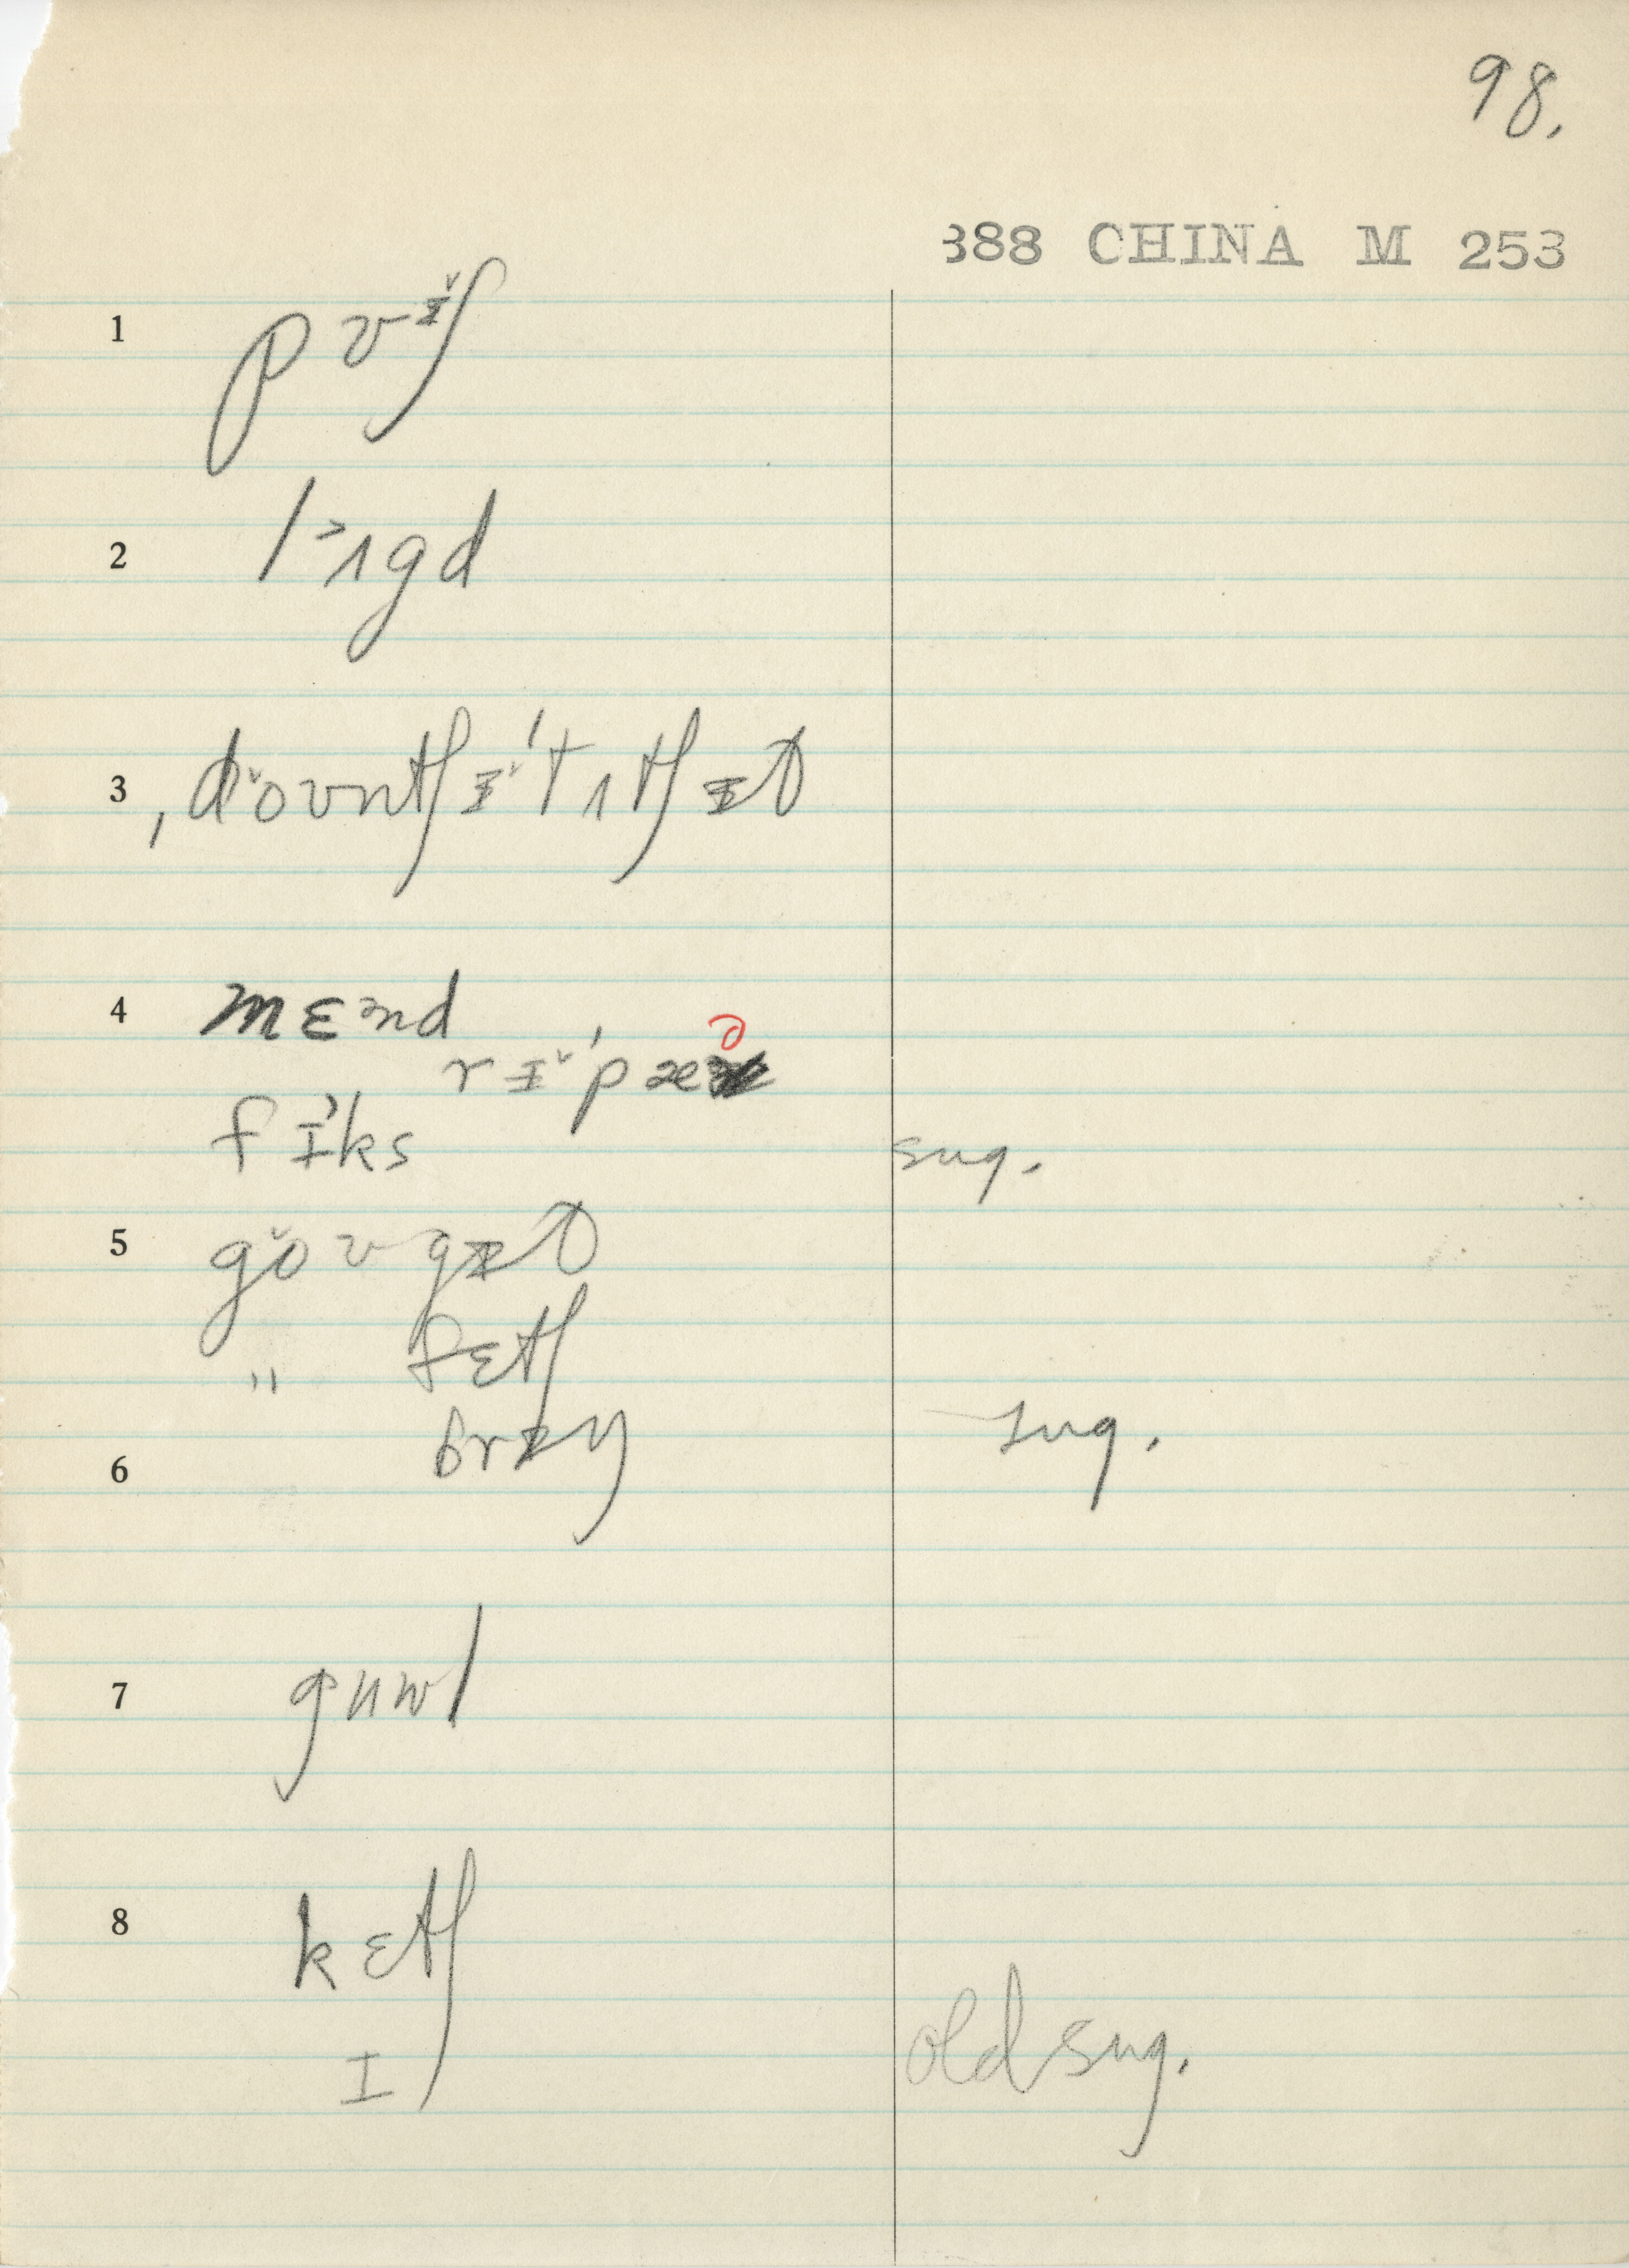 98.
388 CHINA M 253
1 pʊɪ̆ʃ
2 lɜʌgd
3 ˌdŏʊntʃɨ̆ˈtʌtʃɨt̬
4 mɛɜnd
rɨ̆ˈpæə
fɪɜks
sug.
5 gŏʊ gɨt̬
" fɛtʃ
6 brɨŋ
sug.
7 guwl
8 kɛtʃ
ɪ
old sug.